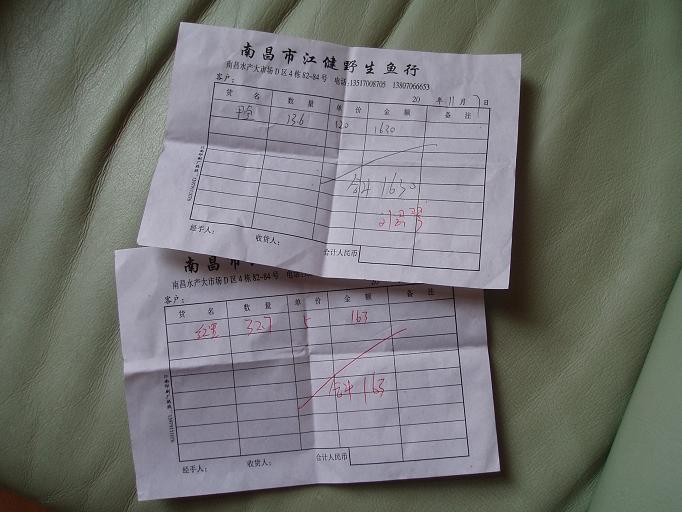 南昌市江健野生鱼行
南昌水产大市场D区4栋82-84号 电话:13517008705 13807066653
客户: 20 年11月7日
货 名 数 量 单 价 金 额 备 注
甲鱼 13.6 120 1630
合计 1630
经手人: 收货人: 合计人民币
南昌市
南昌水产大市场D区4栋82-84号 电话
客户:
货 名 数 量 单 价 金 额 备 注
32.7 5 163
合计 163
经手人: 收货人: 合计人民币